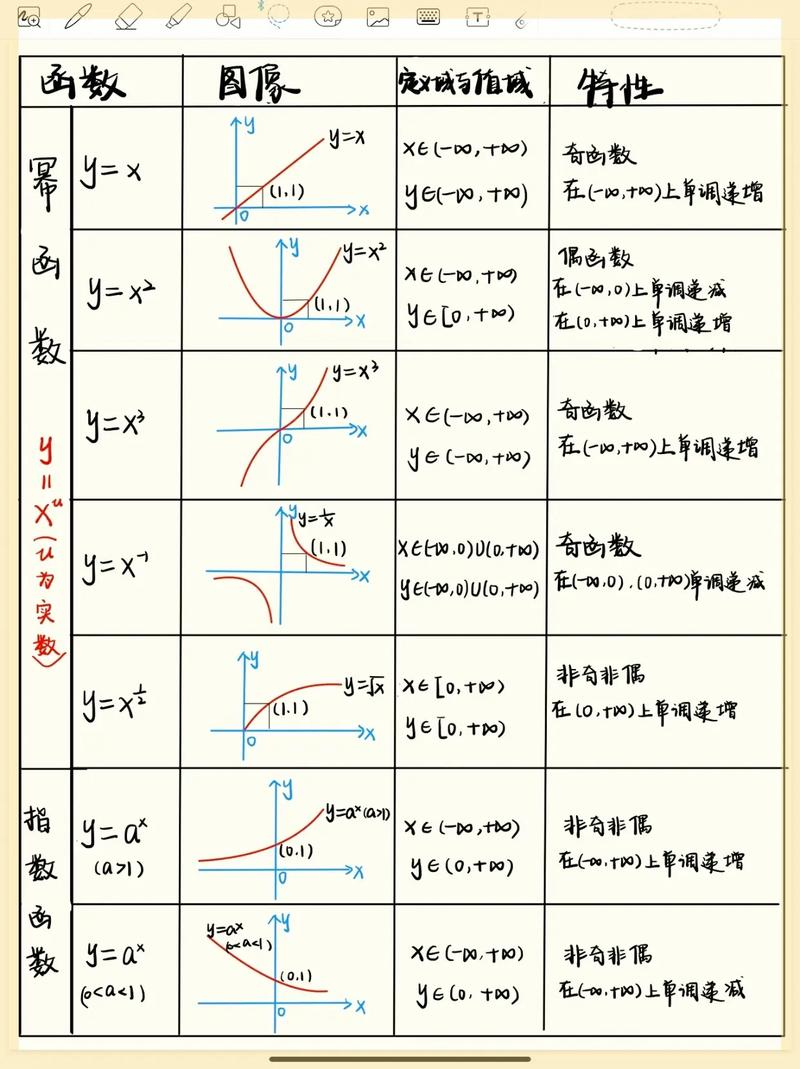 函数 图像 定义域与值域 特性
幂函数
y=xᵘ(u为实数)
y=x
y
y=x
(1,1)
0
x
x∈(-∞,+∞)
y∈(-∞,+∞)
奇函数
在(-∞,+∞)上单调递增
y=x²
y
y=x²
(1,1)
0
x
x∈(-∞,+∞)
y∈[0,+∞)
偶函数
在(-∞,0)上单调递减
在(0,+∞)上单调递增
y=x³
y
y=x³
(1,1)
0
x
x∈(-∞,+∞)
y∈(-∞,+∞)
奇函数
在(-∞,+∞)上单调递增
y=x⁻¹
y
y=1/x
(1,1)
x
x∈(-∞,0)∪(0,+∞)
y∈(-∞,0)∪(0,+∞)
奇函数
在(-∞,0),(0,+∞)单调递减
y=x^½
y
y=√x
(1.1)
0
x
x∈[0,+∞)
y∈[0,+∞)
非奇非偶
在(0,+∞)上单调递增
指数函数
y=aˣ
(a>1)
y
y=aˣ(a>1)
(0.1)
0
x
x∈(-∞,+∞)
y∈(0,+∞)
非奇非偶
在(-∞,+∞)上单调递增
y=aˣ
(0<a<1)
y
y=aˣ
(0<a<1)
(0,1)
0
x
x∈(-∞,+∞)
y∈(0,+∞)
非奇非偶
在(-∞,+∞)上单调递减